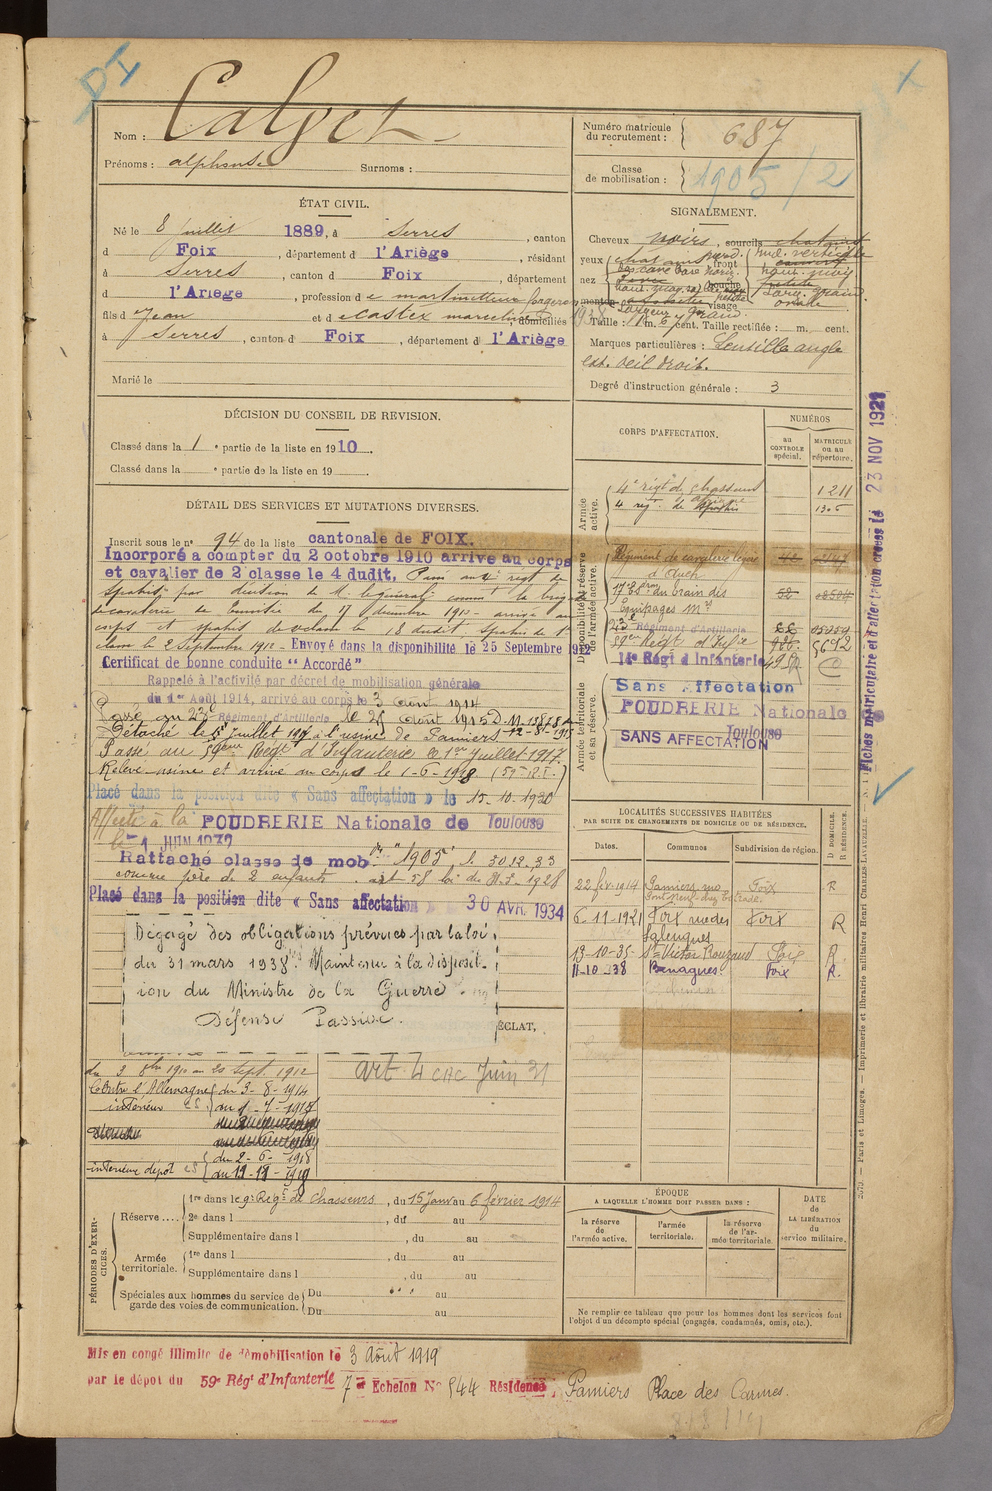 DI
Nom : Calvet
Prénoms : alphonse Surnoms :
Numéro matricule du recrutement : 687
Classe de mobilisation : 1905/2
ÉTAT CIVIL.
Né le 8 juillet 1889, à Serres, canton
d Foix, département d l'Ariège, résidant
à Serres, canton d Foix, département
d l'Ariège, profession d e martineteur forgeron
fils d Jean et d e Castex marceline, domiciliés
à Serres, canton d Foix, département d l'Ariège
Marié le
SIGNALEMENT.
Cheveux noirs, sourcils chatains
yeux front
nez bouche
menton visage
Taille : 1 m. 6 cent. Taille rectifiée : m. cent.
Marques particulières : Lentille angle
ext. oeil droit.
Degré d'instruction générale : 3
DÉCISION DU CONSEIL DE REVISION.
Classé dans la 1e partie de la liste en 1910.
Classé dans la e partie de la liste en 19
DÉTAIL DES SERVICES ET MUTATIONS DIVERSES.
Inscrit sous le n° 94 de la liste cantonale de FOIX.
Incorporé a compter du 2 octobre 1910 arrive au corps
et cavalier de 2 classe le 4 dudit, Passé au 4e régt de
Spahis par décision de M. le général comt la brigade
de cavalerie de Tunisie du 17 décembre 1910 - arrivé au
corps et spahis de 2e classe le 18 dudit Spahis de 1e
classe le 2 Septembre 1912 - Envoyé dans la disponibilité le 25 Septembre 1912
Certificat de bonne conduite "Accordé"
Rappelé à l'activité par décret de mobilisation générale
du 1er Août 1914, arrivé au corps le 3 Aout 1914
Passé au 23e Régiment d'Artillerie le 25 Aout 1915
Détaché le 5 Juillet 1917 à l'usine de Pamiers
Passé au 59ème Régt d'Infanterie le 1er Juillet 1917.
Relevé usine et arrivé au corps le 1-6-1918 (59e R.I.)
Placé dans la position dite « Sans affectation » le 15-10-1930
Affecté à la POUDRERIE Nationale de Toulouse
le 1 JUIN 1932
Rattaché classe de mob on "1905" le 30.12.33
comme père de 2 enfants art 58 loi du 31.3.1928
Placé dans la position dite « Sans affectation » 30 AVR. 1934
Dégagé des obligations prévues par la loi
du 31 mars 1938. Maintenu à la disposit-
ion du Ministre de la Guerre.
Défense Passive.
ÉCLAT,
art. 4 CAC Juin 31
du 3 8bre 1910 au 25 Sept. 1912
Contre l'Allemagne du 3-8-1914
intérieur CS au 1-7-1917
du 2-6-1918
intérieur dépot CS au
CORPS D'AFFECTATION.
NUMÉROS
au CONTROLE spécial.
MATRICULE ou au répertoire.
Armée active.
4e régt de chasseurs 1211
4 rég. de Spahis 1305
Disponibilité et réserve de l'armée active.
Régiment de cavalerie légère
d'Auch
17e Esdron du train des
Equipages Mres
23e Régiment d'Artillerie
59ème Régt d'Infie 5692
14e Régt d'Infanterie
Armée territoriale et sa réserve.
Sans Affectation
POUDRERIE Nationale
Toulouse
SANS AFFECTATION
Fiches matriculaire et d'affectation créées le 23 NOV 1921
LOCALITÉS SUCCESSIVES HABITÉES
PAR SUITE DE CHANGEMENTS DE DOMICILE OU DE RÉSIDENCE.
Dates. Communes Subdivision de région. D DOMICILE. R RÉSIDENCE.
22 fév. 1914 Pamiers Foix R
6-11-1921 Foix rue des Salenques Foix R
13-10-35 St Victor Rouzaud Foix R.
11-10-38 Bénagues Foix R.
2079. — Paris et Limoges. — Imprimerie et librairie militaires Henri CHARLES-LAVAUZELLE.
PÉRIODES D'EXERCICES.
Réserve .... 1re dans le 9e Régt de Chasseurs, du 15 Janv au 6 février 1914
2e dans l , du au
Supplémentaire dans l , du au
Armée territoriale. 1re dans l , du au
Supplémentaire dans l , du au
Spéciales aux hommes du service de garde des voies de communication. Du au
Du au
ÉPOQUE
A LAQUELLE L'HOMME DOIT PASSER DANS :
la réserve de l'armée active.
l'armée territoriale.
la réserve de l'armée territoriale
DATE de LA LIBÉRATION du service militaire.
Ne remplir ce tableau que pour les hommes dont les services font
l'objet d'un décompte spécial (engagés, condamnés, omis, etc.).
Mis en congé illimité de démobilisation le 3 Août 1919
par le dépôt du 59e Régt d'Infanterie 7e Echelon N° 544 Résidence, Pamiers Place des Carmes.